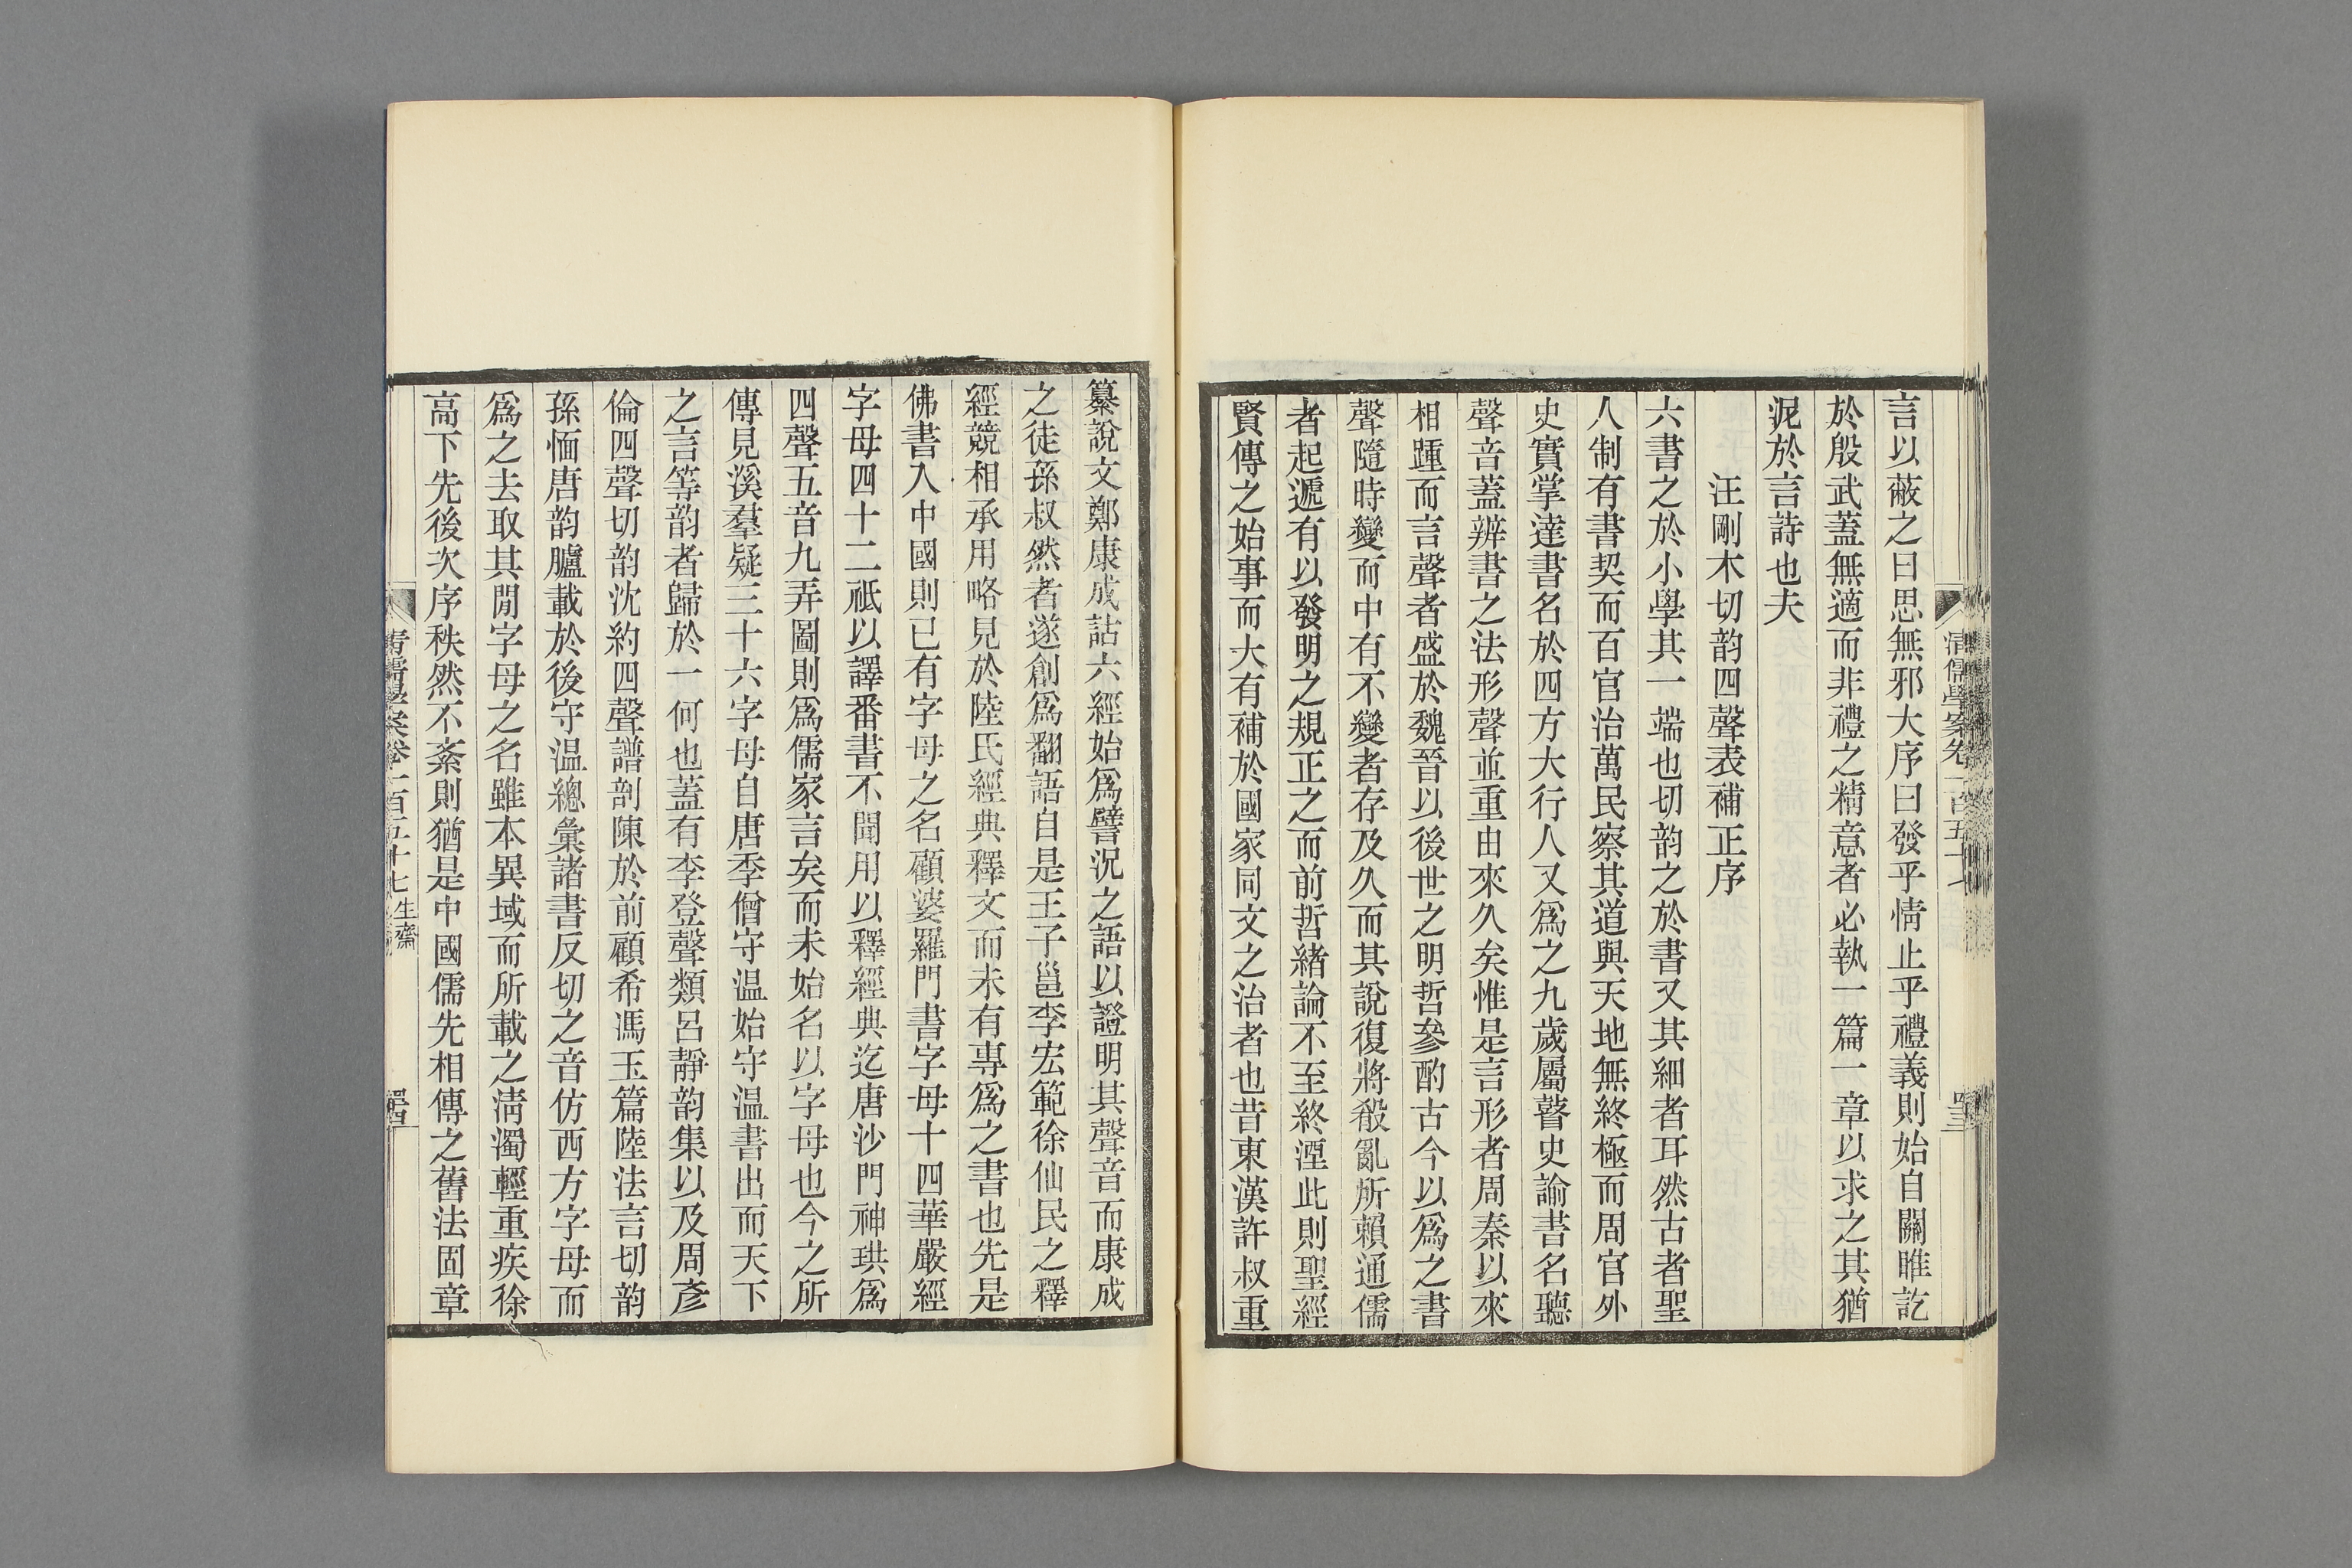 清儒學案卷一百五十七
言以蔽之曰思無邪大序曰發乎情止乎禮義則始自關雎訖
於殷武蓋無適而非禮之精意者必執一篇一章以求之其猶
泥於言詩也夫
汪剛木切韵四聲表補正序
六書之於小學其一端也切韵之於書又其細者耳然古者聖
人制有書契而百官治萬民察其道與天地無終極而周官外
史實掌達書名於四方大行人又爲之九歲屬瞽史諭書名聽
聲音蓋辨書之法形聲並重由來久矣惟是言形者周秦以來
相踵而言聲者盛於魏晉以後世之明哲參酌古今以爲之書
聲隨時變而中有不變者存及久而其說復將殽亂所賴通儒
者起遞有以發明之規正之而前哲緒論不至終湮此則聖經
賢傳之始事而大有補於國家同文之治者也昔東漢許叔重
纂說文鄭康成詁六經始爲譬況之語以證明其聲音而康成
之徒孫叔然者遂創爲翻語自是王子邕李宏範徐仙民之釋
經競相承用略見於陸氏經典釋文而未有專爲之書也先是
佛書入中國則已有字母之名顧婆羅門書字母十四華嚴經
字母四十二祇以譯番書不聞用以釋經典迄唐沙門神珙爲
四聲五音九弄圖則爲儒家言矣而未始名以字母也今之所
傳見溪羣疑三十六字母自唐季僧守温始守温書出而天下
之言等韵者歸於一何也蓋有李登聲類呂靜韵集以及周彥
倫四聲切韵沈約四聲譜剖陳於前顧希馮玉篇陸法言切韵
孫愐唐韵臚載於後守温總彙諸書反切之音仿西方字母而
爲之去取其閒字母之名雖本異域而所載之淸濁輕重疾徐
高下先後次序秩然不紊則猶是中國儒先相傳之舊法固章
清儒學案卷一百五十七 生齋